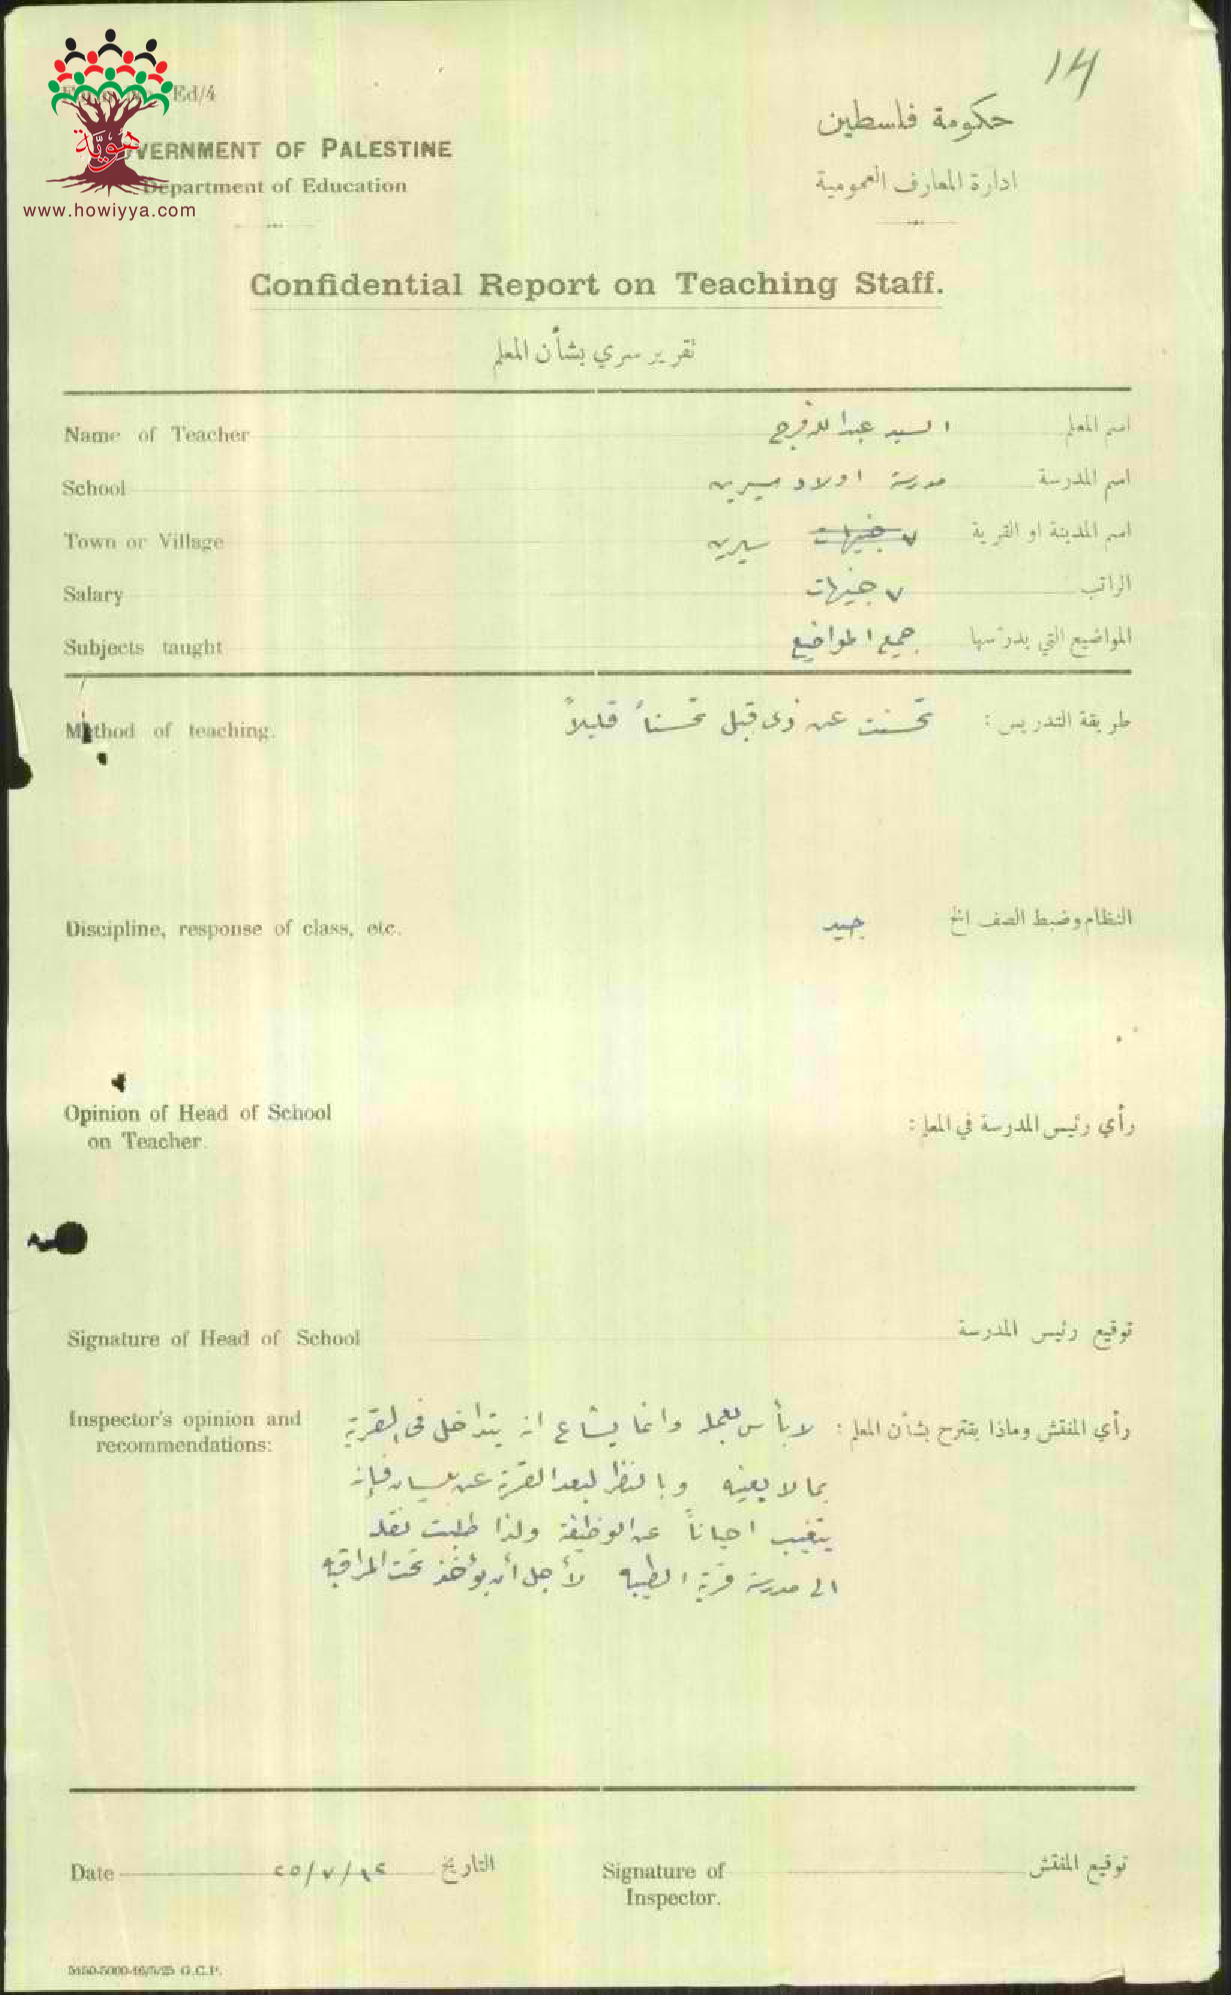 ١٤
هوية
www.howiyya.com
Ed/4
حكومة فلسطين
GOVERNMENT OF PALESTINE
ادارة المعارف العمومية
Department of Education
Confidential Report on Teaching Staff.
تقرير سري بشأن المعلم
Name of Teacher السيد عبدالله فرج اسم المعلم
School مدرسة اولاد سيرين اسم المدرسة
Town or Village ٧ جنيهات سيرين اسم المدينة او القرية
Salary ٧ جنيهات الراتب
Subjects taught جميع المواضيع المواضيع التي يدرسها
Method of teaching. طريقة التدريس: تحسنت عن ذي قبل تحسناً قليلاً
Discipline, response of class, etc. النظام وضبط الصف الخ جيد
Opinion of Head of School
on Teacher. رأي رئيس المدرسة في المعلم:
Signature of Head of School توقيع رئيس المدرسة
Inspector's opinion and رأي المفتش وماذا يقترح بشأن المعلم: لا بأس بعمله وانما يشاع انه يتداخل في القرية
recommendations:
بما لا يعنيه وبالنظر لبعد القرية عن بيسان فإنه
يتغيب احياناً عن الوظيفة ولذا طلبت نقله
الى مدرسة قرية الطيبه لأجل أن يؤخذ تحت المراقبه
Date التاريخ Signature of توقيع المفتش
Inspector.
5150-5000-16/5/25 G.C.P.